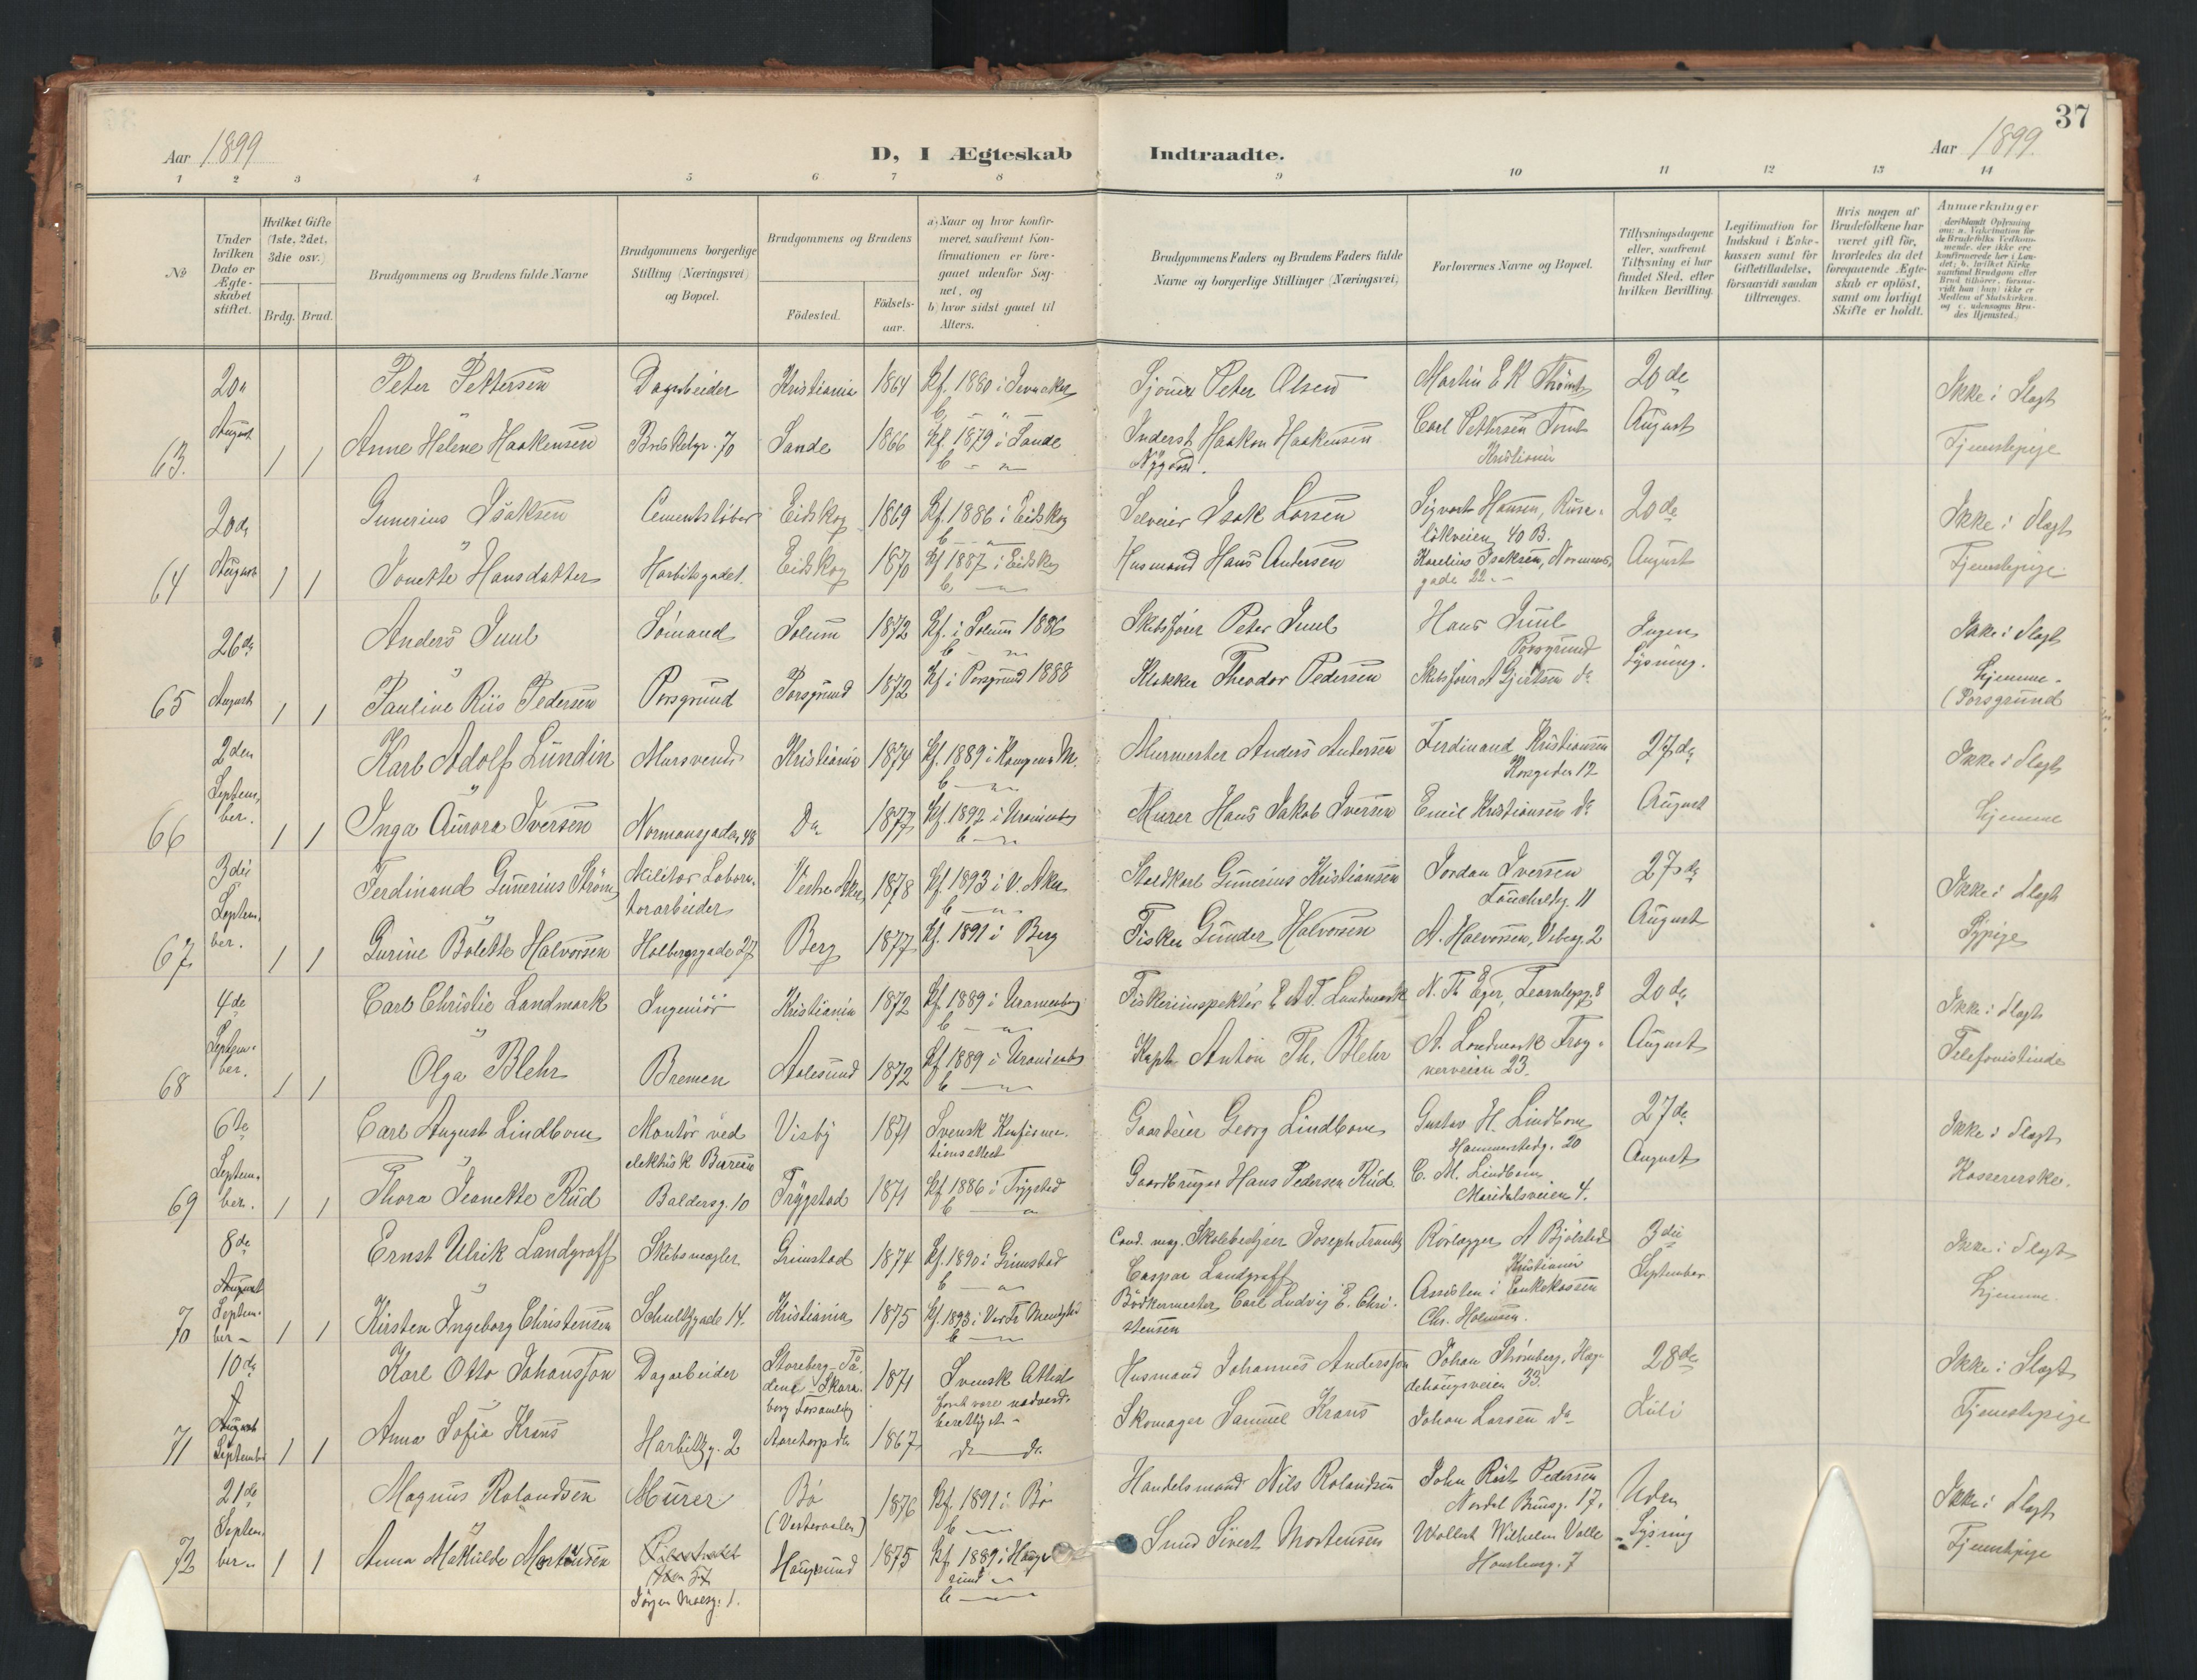 37
Aar 1899
D, I Ægteskab Indtraadte.
Aar 1899.
1 2 3 4 5 6 7 8 9 10 11 12 13 14
No
Under hvilken Dato er Ægteskabet stiftet.
Hvilket Gifte (1ste, 2det, 3die osv.)
Brdg. Brud.
Brudgommens og Brudens fulde Navne
Brudgommens borgerlige Stilling (Næringsvei) og Bopæl.
Brudgommens og Brudens
Födested.
Födselsaar.
a) Naar og hvor konfirmeret, saafremt Konfirmationen er foregaaet udenfor Sognet, og
b) hvor sidst gaaet til Alters.
Brudgommens Faders og Brudens Faders fulde Navne og borgerlige Stillinger (Næringsvei)
Forlovernes Navne og Bopæl.
Tillysningsdagene eller, saafremt Tillysning ei har fundet Sted, efter hvilken Bevilling.
Legitimation for Indskud i Enkekassen samt for Giftetilladelse, forsaavidt saadan tiltrænges.
Hvis nogen af Brudefolkene har været gift för, hvorledes da det foregaaende Ægteskab er oplöst, samt om lovligt Skifte er holdt.
Anmerkninger
deriblandt Oplysning om: a. Vakcination for de Brudefolks Vedkommende, der ikke ere konfirmerede her i Landet; b. hvilket Kirkesamfund Brudgom eller Brud tilhører, forsaavidt han (hun) ikke er Medlem af Statskirken, og c. udensogns Brudes Hjemsted.)
63. 20de August 1 1
Peter Pettersen Dagarbeider Kristiania 1864 Kf. 1880 i
Sjömd Peter Olsen Martin E R 20de Ikke i Slægt
Anne Helene Haakensen Briskebyv. 70 Sande 1866 Kf. 1879 i Sande
Inderst Haakon Haakensen Carl Pettersen August Tjenestepige
Kristiania
64 20de August 1 1
Gunerius Isaksen Cementstöber Eidskog 1869 Kf. 1886 i Eidskog
Selveier Isak Larsen Sigvart Hansen, Ruselökveien 40 B. 20de Ikke i Slægt
Jonette Hansdatter Harbitzgadet. Eidskog 1870 Kf 1887 i Eidskog
Husmand Hans Andersen Karelius Isaksen, Normannsgade 22 August Tjenestepige
65 26de August 1 1
Anders Juul Sömand Solum 1872 Kf. i Solum 1886
Skibsförer Peter Juul Hans Juul Porsgrund Ingen Lysning. Ikke i Slægt
Pauline Riis Pedersen Porsgrund Porsgrund 1872 Kf i Porsgrund 1888
Klokker Theodor Pedersen Skibsförer A Gjertsen do Hjemme. (Porsgrund
66 2den September. 1 1
Karl Adolf Lundin Mursvend Kristiania 1874 Kf. 1889 i Kampens M.
Murmester Anders Andersen Ferdinand Kristiansen Korsgaden 12 27de Ikke i Slægt
Inga Aurora Iversen Normansgaden 48 Do 1877 Kf. 1892 i Uranienb
Murer Hans Jakob Iversen Emil Kristiansen do August Hjemme
67 3die September. 1 1
Ferdinand Gunerius Ström Militær Laboratorarbeider Vestre Aker 1878 Kf 1893 i V. Aker
Staldkarl Gunerius Kristiansen Jordan Iversen 11 27de Ikke i Slægt
Gurine Bolette Halvorsen Holbergsgade 27 Berg 1877 Kf. 1891 i Berg
Fisker Gunder Halvorsen A. Halvorsen, Vibesg. 2 August Sypige
68 4de September. 1 1
Carl Christie Landmark Ingeniör Kristiania 1872 Kf. 1889 i Uranienborg
Fiskeriinspektör A. T. Landmark N. Th Eger, 8 20de Ikke i Slægt
Olga Blehr Bremen Aalesund 1872 Kf 1889 i Uranienb
Kapt Anton Th. Blehr A. Landmark Frognerveien 23. August Telefonistinde
69 6te September. 1 1
Carl August Lindbom Montör ved elektrisk Bureau Visby 1871 Svensk Konfirmationsattest
Gaardeier Georg Lindbom Gustav H. Lindbom Hammerstedg. 20 27de Ikke i Slægt
Thora Jeanette Rud Baldersg. 10 Trygstad 1871 Kf 1886 i Trygstad
Gaardbruger Hans Pedersen Rud. C. M. Lindbom Maridalsveien 4. August Kassererske.
70 8de August September 1 1
Ernst Ulrik Landgraff Skibsmægler Grimstad 1874 Kf. 1890 i Grimstad
Cand. mag. Skolebestyrer Joseph Frantz Caspar Landgraff Rörlægger A Bjölstad Kristiania 3die Ikke i Slægt
Kirsten Ingeborg Christensen Schultzgade 14. Kristiania 1875 Kf. 1893 i Menighed
Bödkermester Carl Ludvig E. Christensen Assistent i Enkekassen Chr. Holmsen. September Hjemme.
71 10de August September 1 1
Karl Otto Johansson Dagarbeider Storeberg 1871 Svensk Attest
Husmand Johannes Andersson Johan Strömberg, Hagdehougsveien 33. 28de Ikke i Slægt
Anna Sofia Krans Harbitzg. 2 Aaretorp do 1867 do do
Skomager Samuel Krans Johan Larsen do Juli Tjenestepige
72 21de September 1 1
Magnus Rolandsen Murer Bö (Vesteraalen) 1876 Kf. 1891 i Bö
Handelsmand Nils Rolandsen John Rist Pedersen Nordal Brunsg. 17. Uden Lysning Ikke i Slægt
Anna Mathilde Mortensen Jörgen Moesg. 1. Haugesund 1875 Kf. 1889 i Haugesund
Smed Sivert Mortensen Wollert Wilhelm Valle 7 Tjenestepige